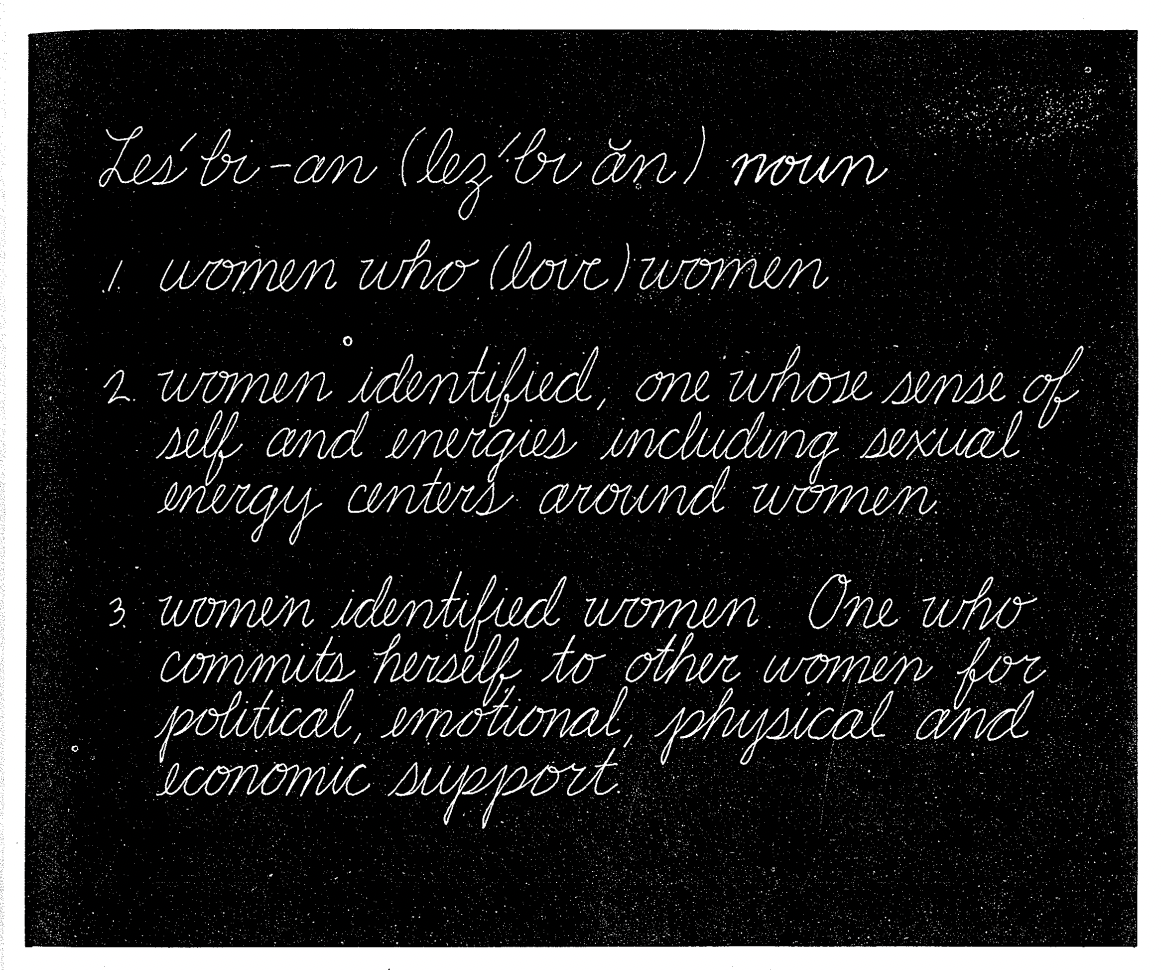 Les´bi-an (lez´bi ăn) noun
1. women who (love) women
2. women identified, one whose sense of
self and energies including sexual
energy centers around women
3. women identified women. One who
commits herself to other women for
political, emotional, physical and
economic support.